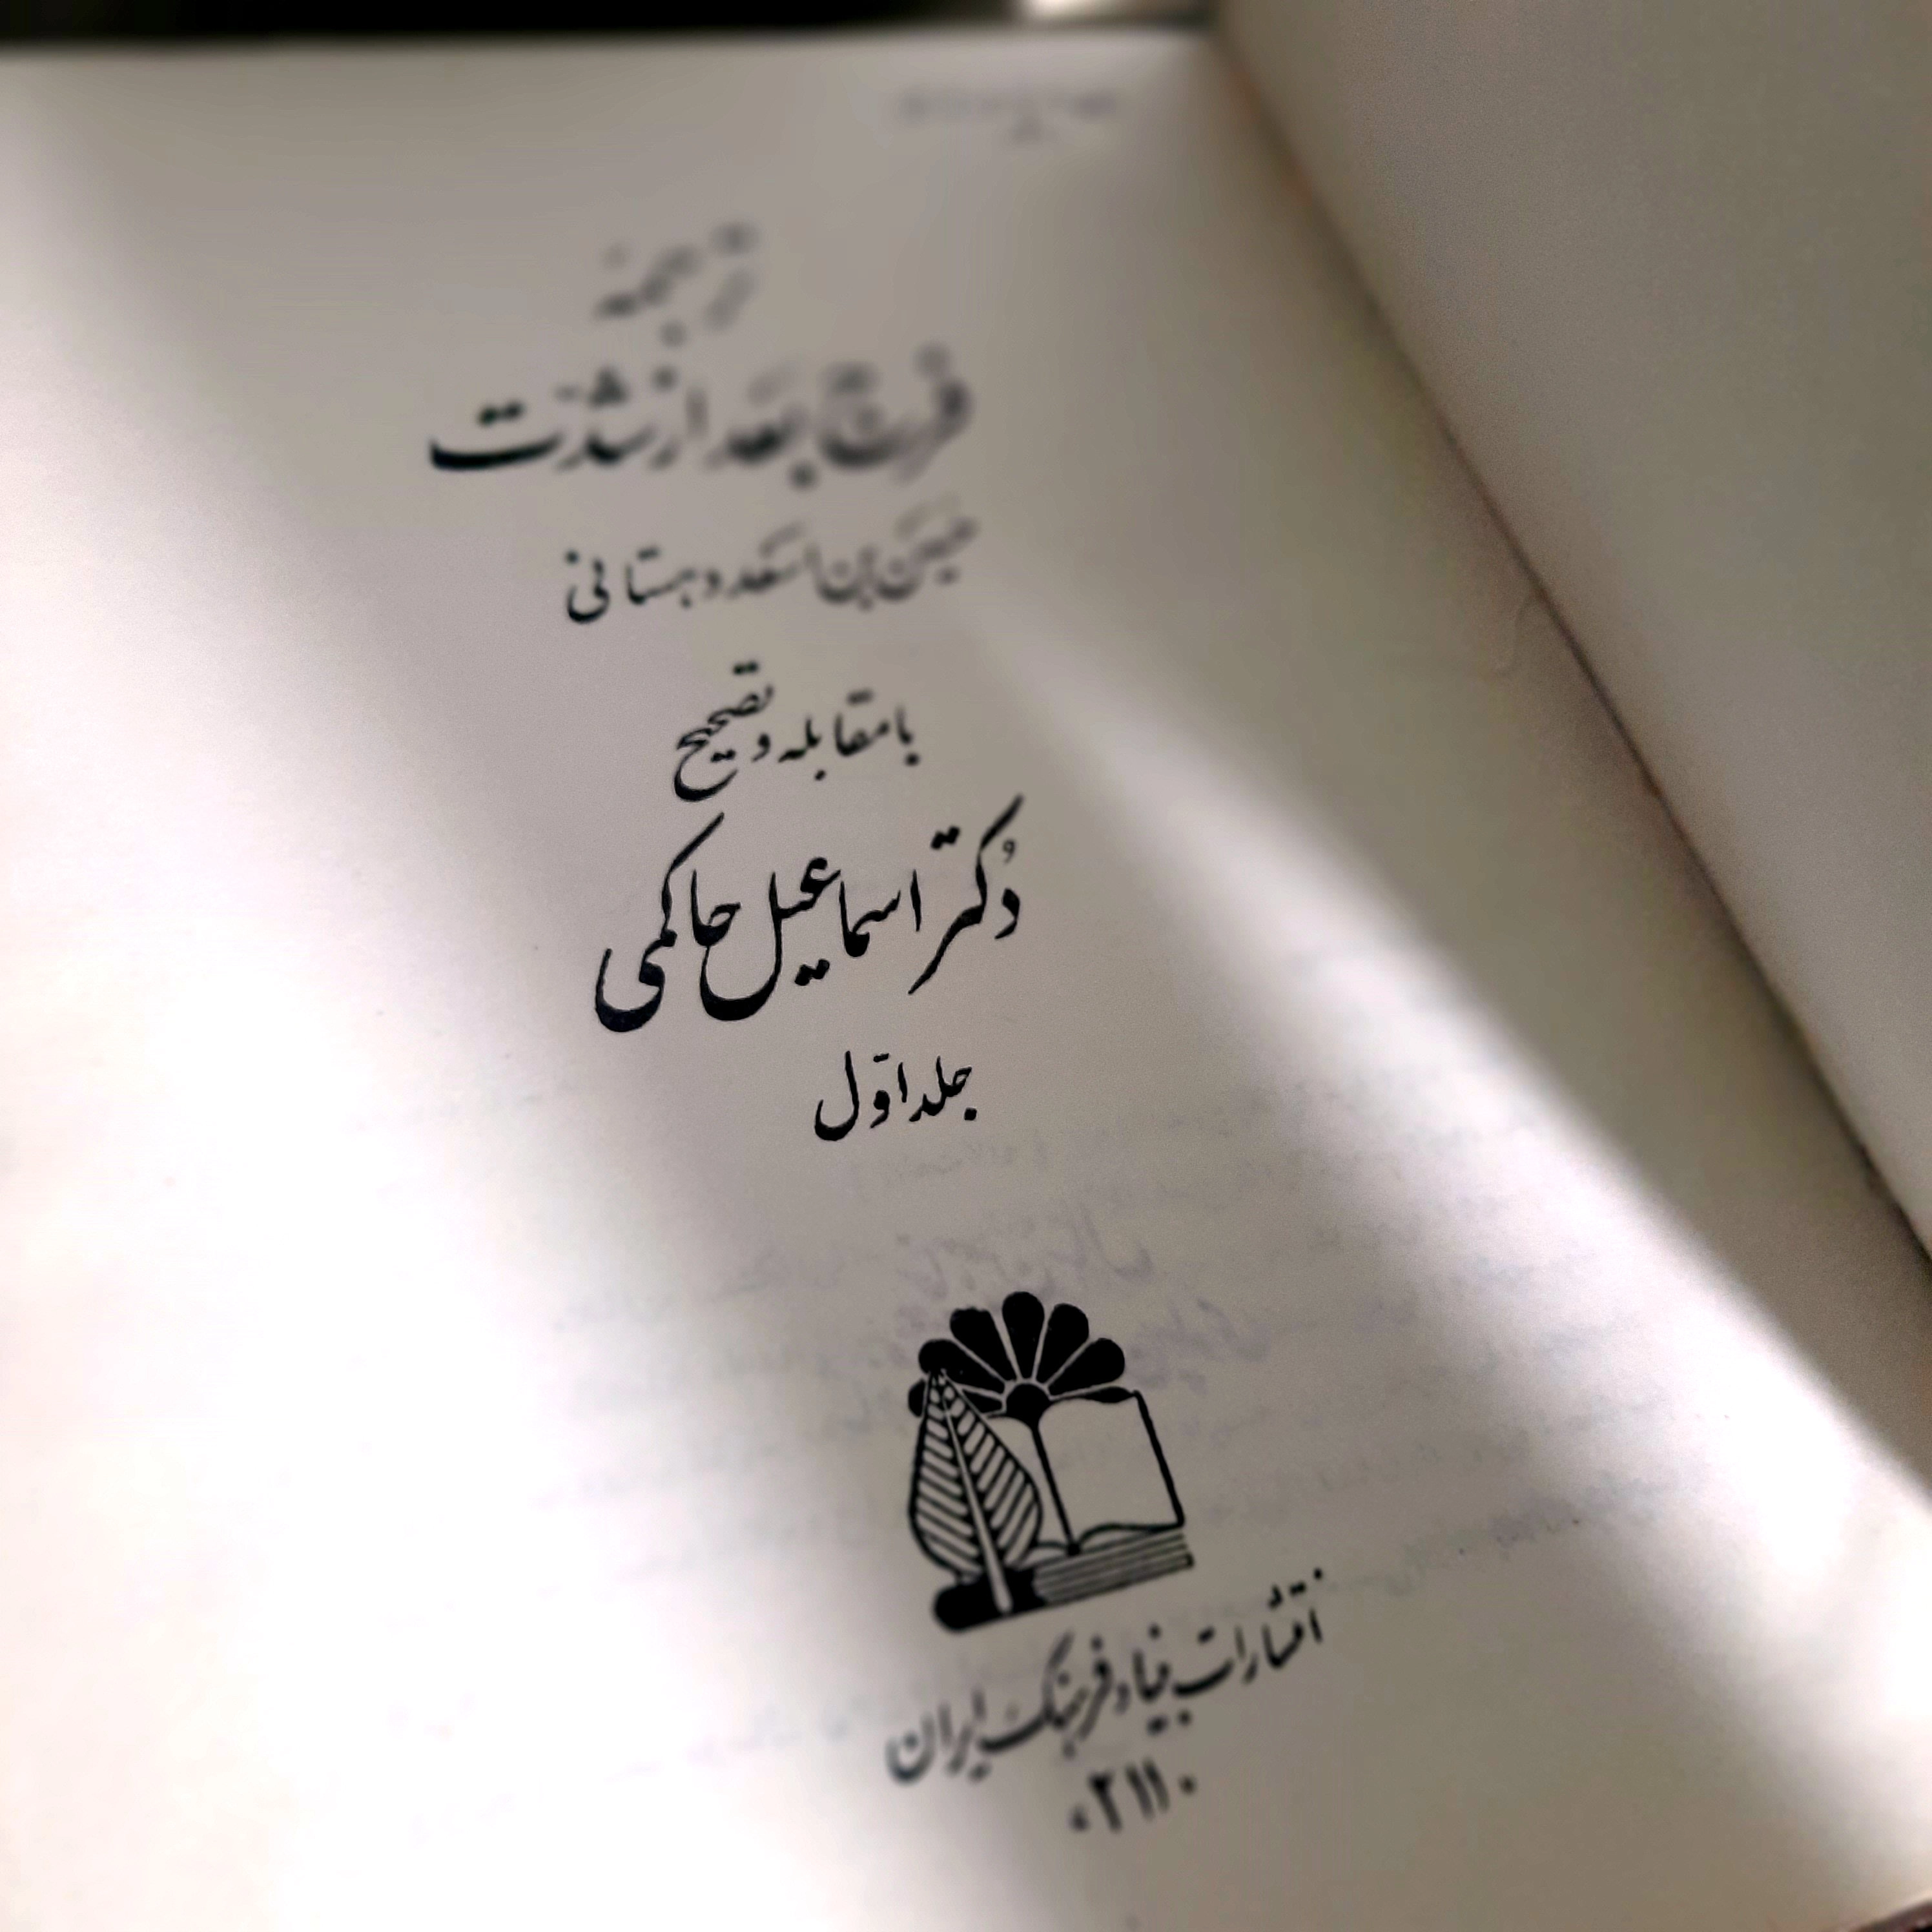 ترجمهٔ
فرج بعد از شدّت
حسین بن اسعد دهستانی
با مقابله و تصحیح
دُکتر اسماعیل حاکمی
جلد اوّل
انتشارات بنیاد فرهنگ ایران
«۲۱۱»